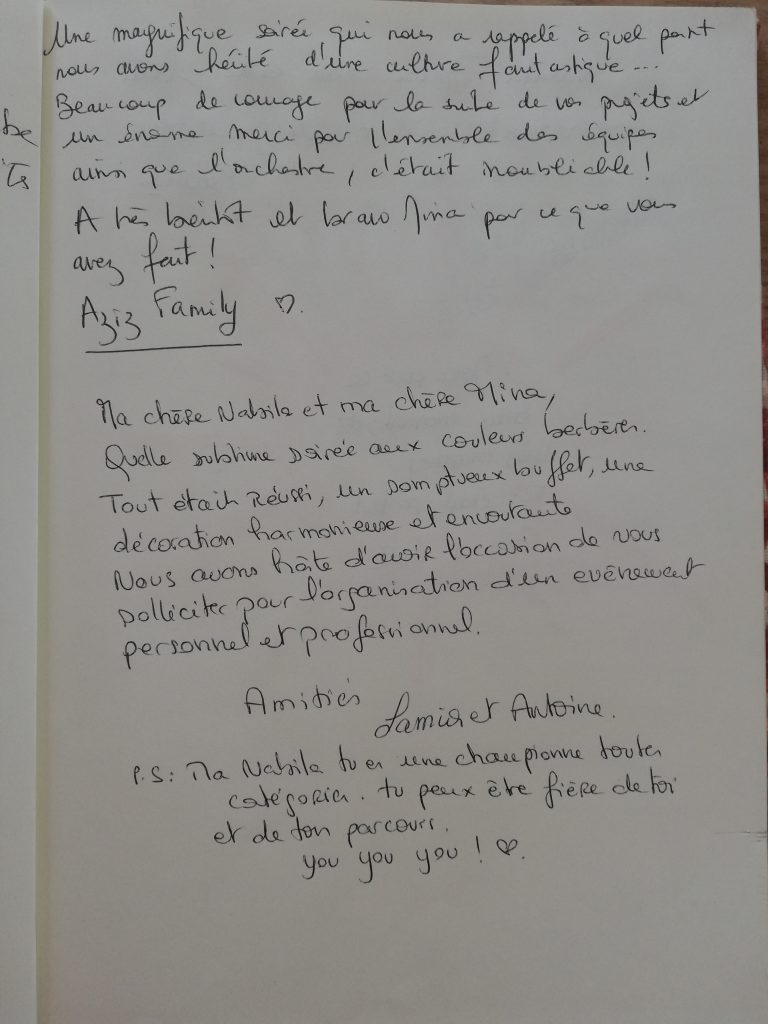 Une magnifique soirée qui nous a rappelé à quel point
nous avons hérité d'une culture fantastique...
Beaucoup de courage pour la suite de vos projets et
un énorme merci pour l'ensemble des équipes
ainsi que l'orchestre, c'était inoubliable !
A très bientôt et bravo Nina pour ce que vous
avez fait !
Aziz Family ♡.
Ma chère Nabila et ma chère Nina,
Quelle sublime soirée aux couleurs berbères.
Tout était Réussi, un somptueux buffet, une
décoration harmonieuse et envoutante
Nous avons hâte d'avoir l'occasion de vous
solliciter pour l'organisation d'un evènement
personnel et professionnel.
Amitiés
Samia et Antoine.
P.S: Ma Nabila tu es une championne toutes
catégories. tu peux être fière de toi
et de ton parcours.
you you you ! ♡.